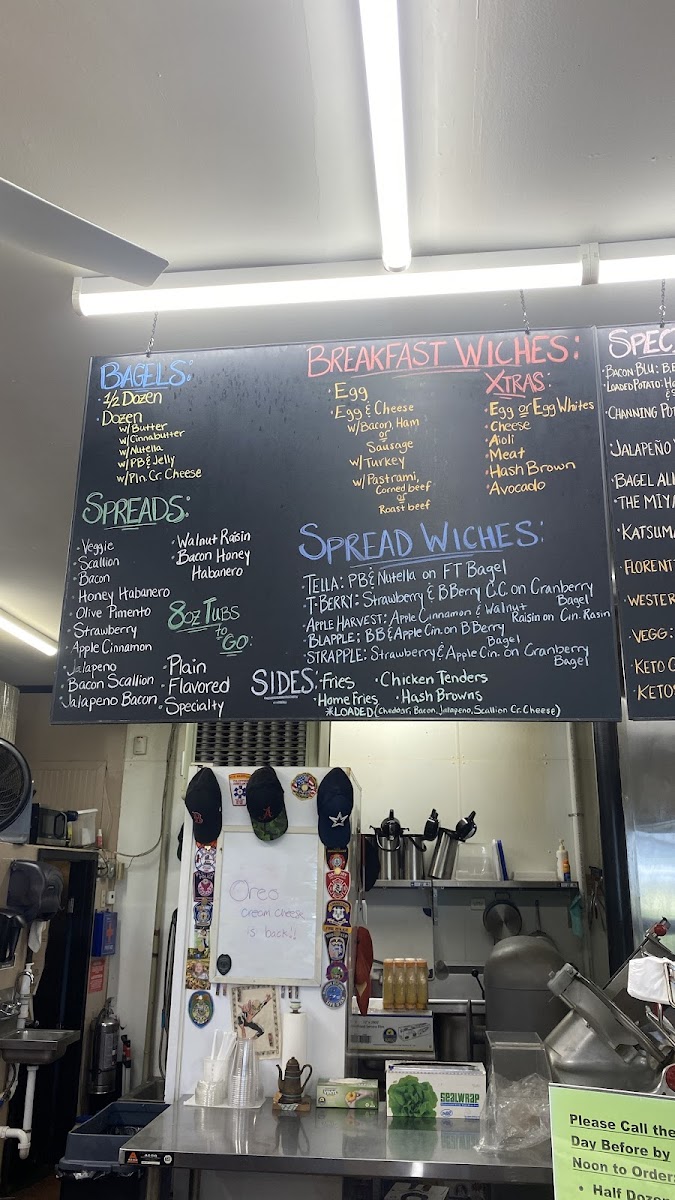 BAGELS:
· 1/2 Dozen
· Dozen
w/ Butter
w/ Cinnabutter
w/ Nutella
w/ PB & Jelly
w/ Pln Cr. Cheese
SPREADS:
· Veggie
· Scallion
· Bacon
· Honey Habanero
· Olive Pimento
· Strawberry
· Apple Cinnamon
· Jalapeno
· Bacon Scallion
· Jalapeno Bacon
· Walnut Raisin
· Bacon Honey
Habanero
8oz TUBS
to
GO:
· Plain
· Flavored
· Specialty
BREAKFAST WICHES:
· Egg
· Egg & Cheese
w/ Bacon, Ham
or
Sausage
w/ Turkey
w/ Pastrami,
Corned beef
or
Roast beef
XTRAS:
· Egg or Egg Whites
· Cheese
· Aioli
· Meat
· Hash Brown
· Avocado
SPREAD WICHES:
TELLA: PB & Nutella on FT Bagel
T-BERRY: Strawberry & BBerry C.C on Cranberry
Bagel
APPLE HARVEST: Apple Cinnamon & Walnut
Raisin on Cin. Rasin
BLAPPLE: BB & Apple Cin. on BBerry
Bagel
STRAPPLE: Strawberry & Apple Cin. on Cranberry
Bagel
SIDES:
· Fries
· Chicken Tenders
· Home Fries
· Hash Browns
*LOADED (Cheddar, Bacon, Jalapeno, Scallion Cr. Cheese)
SPEC
· BACON BLU:
· LOADED POTATO:
· CHANNING
· JALAPEÑO
· BAGEL
· THE
· KATSUM
· FLORENT
· WESTER
· VEGG:
· KETO
· KETO
Oreo
cream cheese
is back!!
SEALWRAP
Please Call the
Day Before by
Noon to Order:
• Half Dozen